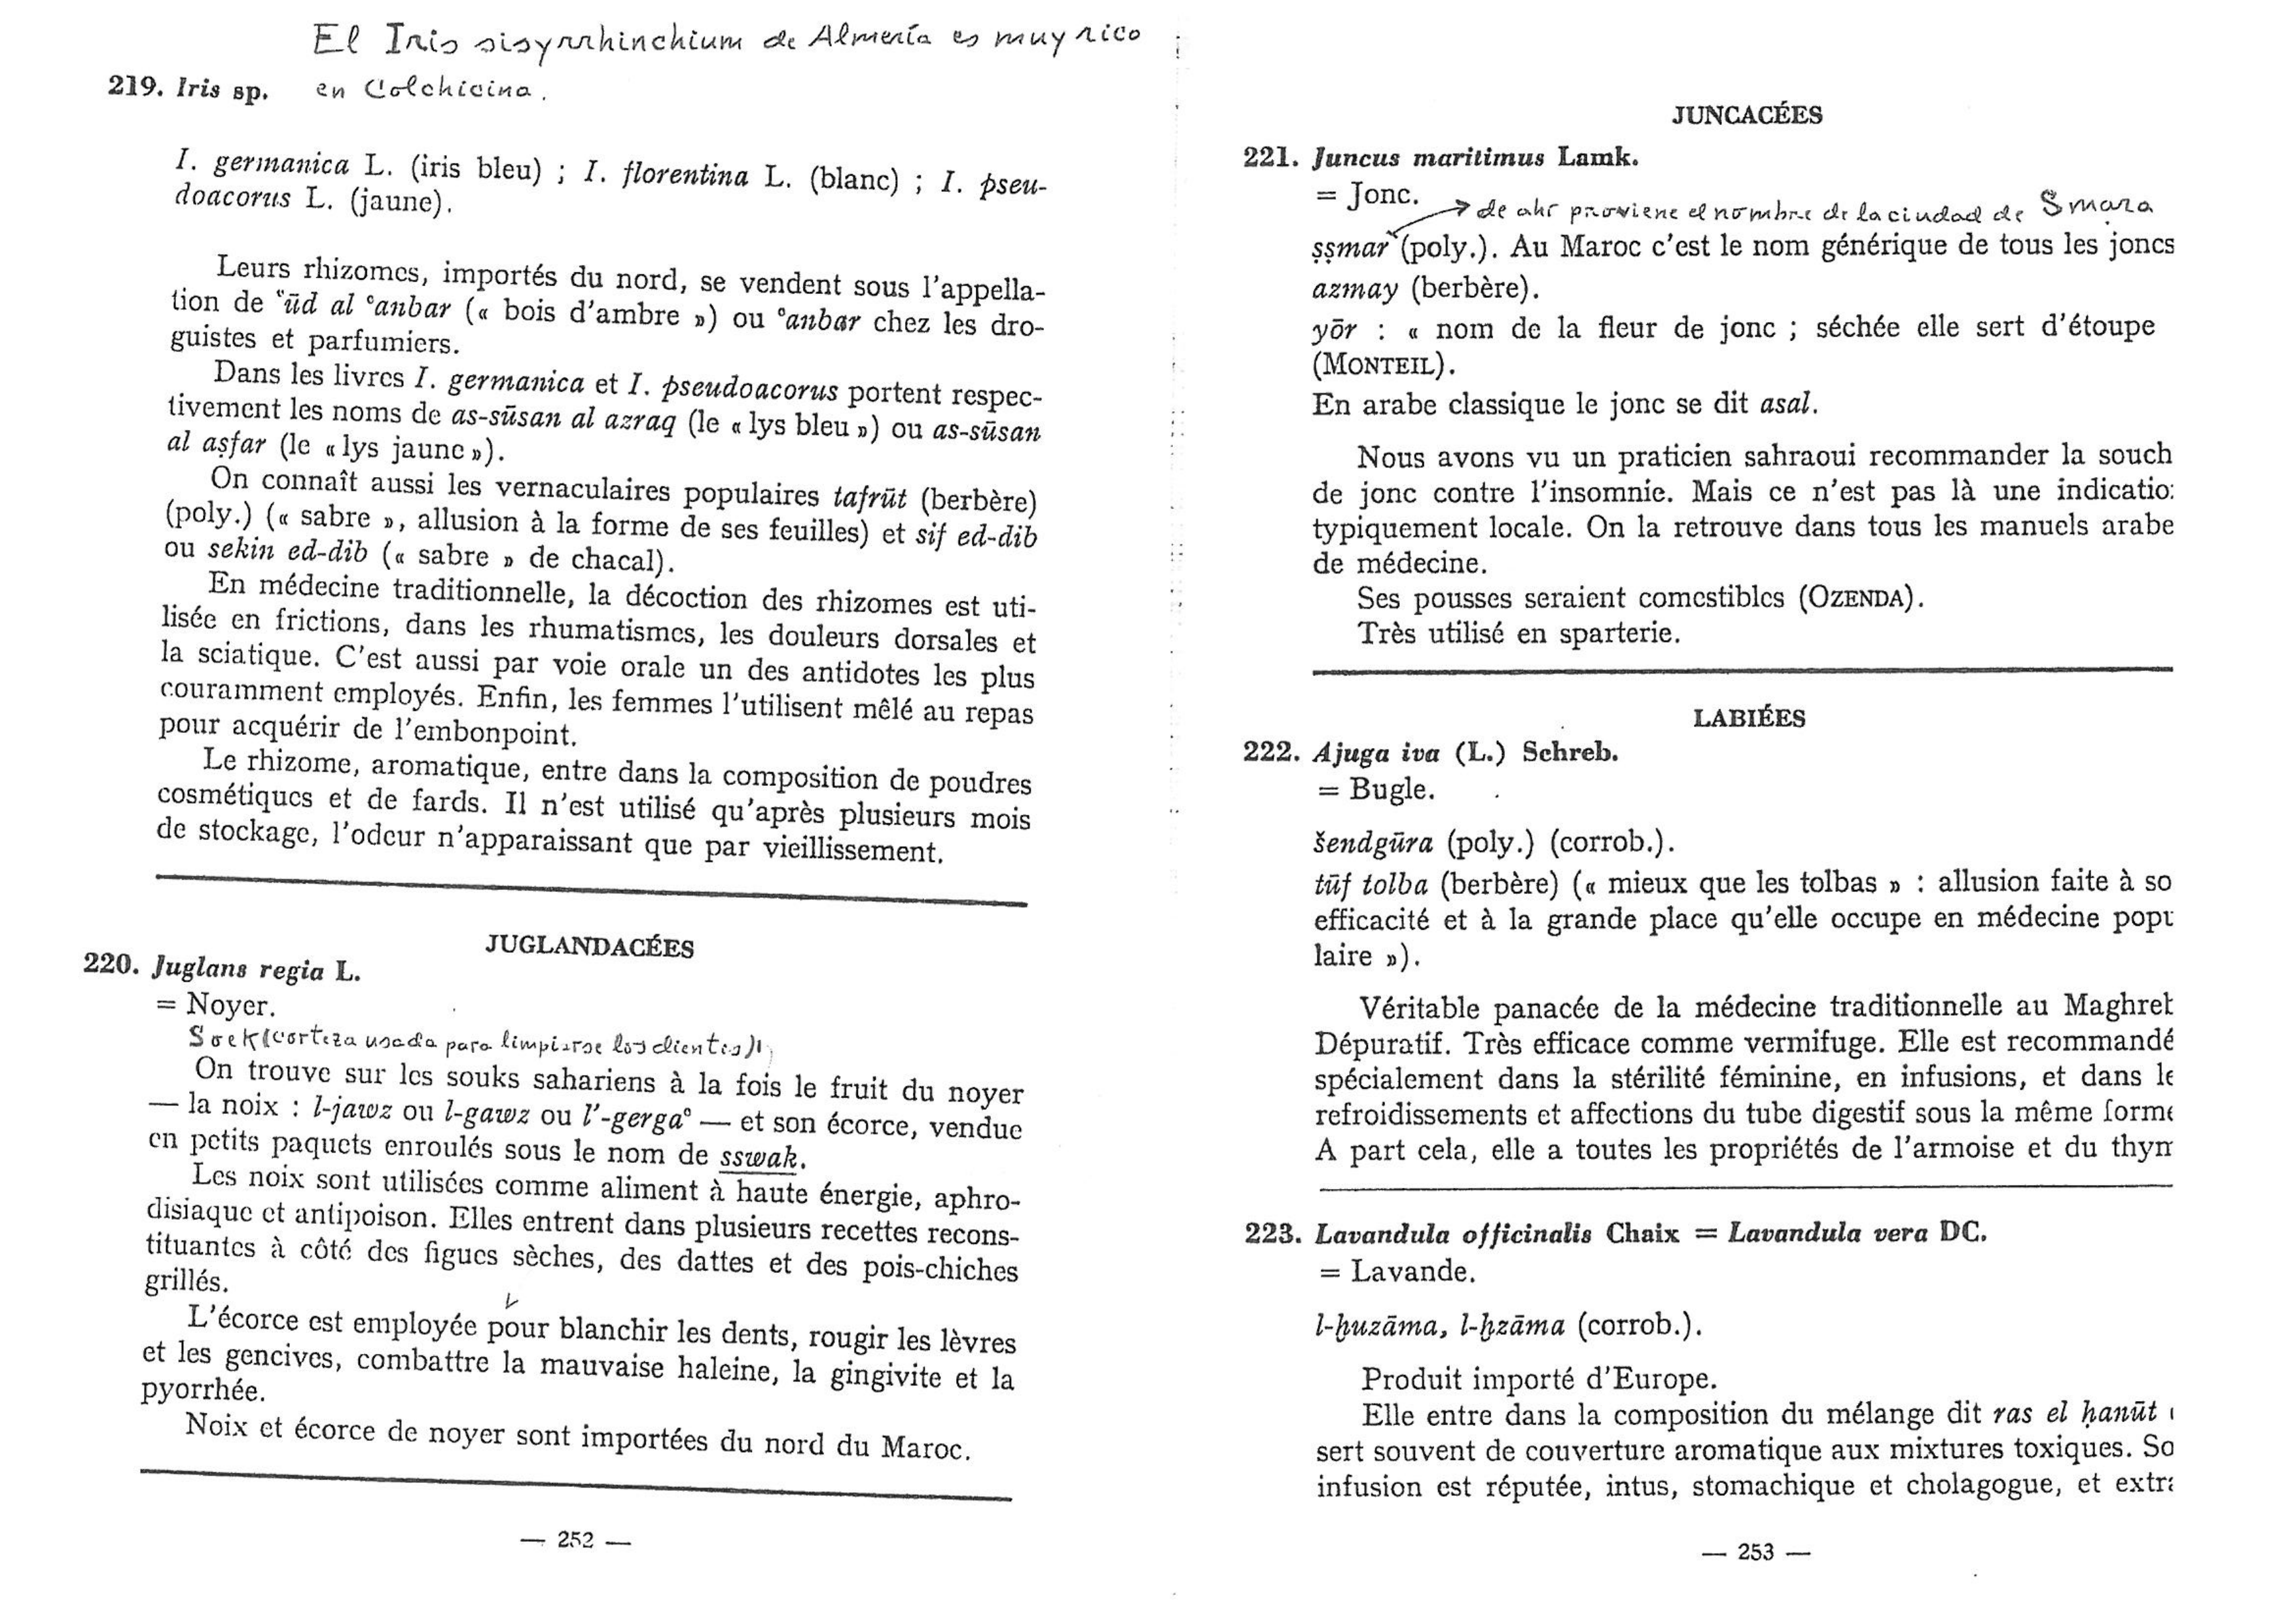 El Iris sisyrrhinchium de Almería es muy rico
219. Iris sp. en Colchicina.
I. germanica L. (iris bleu) ; I. florentina L. (blanc) ; I. pseu-
doacorus L. (jaune).
Leurs rhizomes, importés du nord, se vendent sous l'appella-
tion de ʿūd al ʿanbar (« bois d'ambre ») ou ʿanbar chez les dro-
guistes et parfumiers.
Dans les livres I. germanica et I. pseudoacorus portent respec-
tivement les noms de as-sūsan al azraq (le « lys bleu ») ou as-sūsan
al aṣfar (le « lys jaune »).
On connaît aussi les vernaculaires populaires tafrūt (berbère)
(poly.) (« sabre », allusion à la forme de ses feuilles) et sif ed-dib
ou sekin ed-dib (« sabre » de chacal).
En médecine traditionnelle, la décoction des rhizomes est uti-
lisée en frictions, dans les rhumatismes, les douleurs dorsales et
la sciatique. C'est aussi par voie orale un des antidotes les plus
couramment employés. Enfin, les femmes l'utilisent mêlé au repas
pour acquérir de l'embonpoint.
Le rhizome, aromatique, entre dans la composition de poudres
cosmétiques et de fards. Il n'est utilisé qu'après plusieurs mois
de stockage, l'odeur n'apparaissant que par vieillissement.
JUGLANDACÉES
220. Juglans regia L.
= Noyer.
(corteza usada para limpiarse los dientes)
On trouve sur les souks sahariens à la fois le fruit du noyer
— la noix : l-jawz ou l-gawz ou l'-gergaʿ — et son écorce, vendue
en petits paquets enroulés sous le nom de sswak.
Les noix sont utilisées comme aliment à haute énergie, aphro-
disiaque et antipoison. Elles entrent dans plusieurs recettes recons-
tituantes à côté des figues sèches, des dattes et des pois-chiches
grillés.
L'écorce est employée pour blanchir les dents, rougir les lèvres
et les gencives, combattre la mauvaise haleine, la gingivite et la
pyorrhée.
Noix et écorce de noyer sont importées du nord du Maroc.
— 252 —
JUNCACÉES
221. Juncus maritimus Lamk.
= Jonc.
de ahí proviene el nombre de la ciudad de Smara
ṣṣmar (poly.). Au Maroc c'est le nom générique de tous les joncs
azmay (berbère).
yōr : « nom de la fleur de jonc ; séchée elle sert d'étoupe
(MONTEIL).
En arabe classique le jonc se dit asal.
Nous avons vu un praticien sahraoui recommander la souch
de jonc contre l'insomnie. Mais ce n'est pas là une indicatio
typiquement locale. On la retrouve dans tous les manuels arabe
de médecine.
Ses pousses seraient comestibles (OZENDA).
Très utilisé en sparterie.
LABIÉES
222. Ajuga iva (L.) Schreb.
= Bugle.
šendgūra (poly.) (corrob.).
tūf tolba (berbère) (« mieux que les tolbas » : allusion faite à so
efficacité et à la grande place qu'elle occupe en médecine popu
laire »).
Véritable panacée de la médecine traditionnelle au Maghreb
Dépuratif. Très efficace comme vermifuge. Elle est recommandé
spécialement dans la stérilité féminine, en infusions, et dans le
refroidissements et affections du tube digestif sous la même forme
A part cela, elle a toutes les propriétés de l'armoise et du thym
223. Lavandula officinalis Chaix = Lavandula vera DC.
= Lavande.
l-ḫuzāma, l-ḫzāma (corrob.).
Produit importé d'Europe.
Elle entre dans la composition du mélange dit ras el ḥanūt
sert souvent de couverture aromatique aux mixtures toxiques. So
infusion est réputée, intus, stomachique et cholagogue, et extra
— 253 —